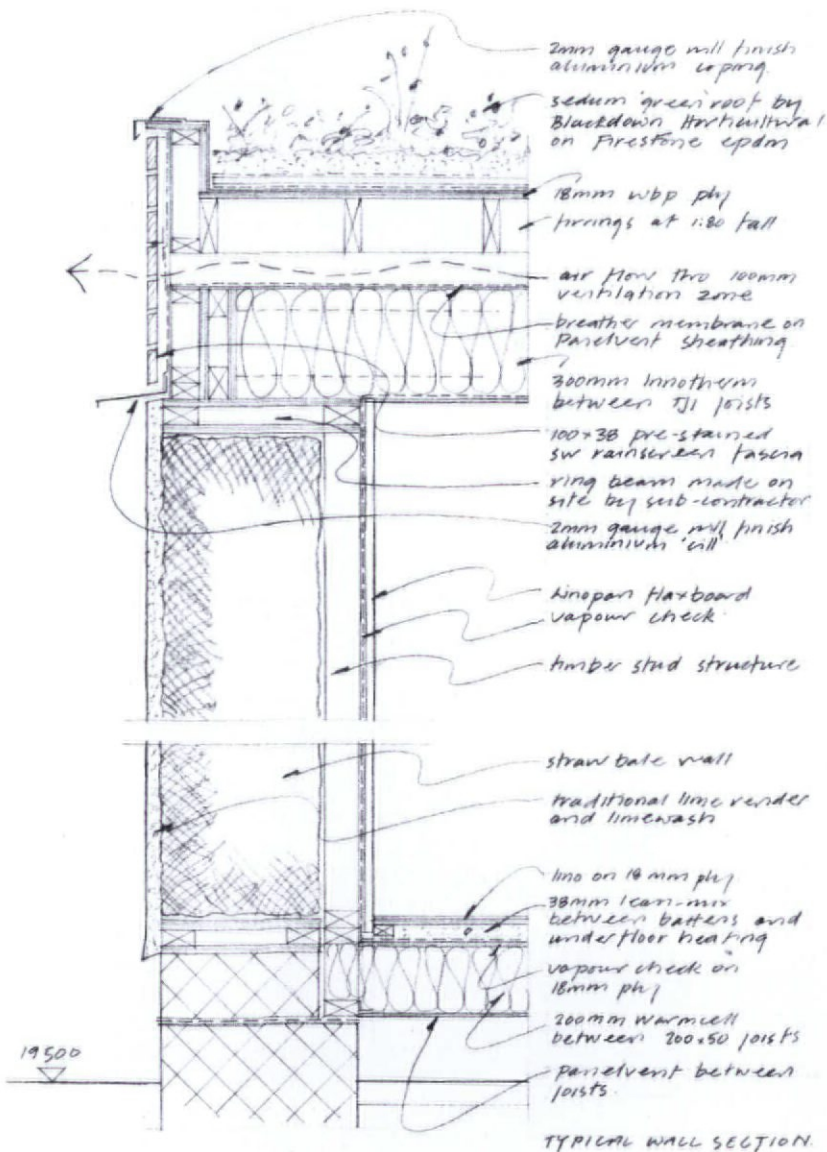 2mm gauge mill finish
aluminium coping.
sedum 'green roof' by
Blackdown Horticultural
on Firestone epdm
18mm wbp ply
firrings at 1:80 fall
air flow thro 100mm
ventilation zone
breather membrane on
Panelvent sheathing.
300mm Innotherm
between TJI joists
100×38 pre-stained
sw rainscreen fascia
ring beam made on
site by sub-contractor
2mm gauge mill finish
aluminium 'cill'
Linopan flaxboard
vapour check.
timber stud structure
straw bale wall
traditional lime render
and limewash
lino on 18mm ply
38mm lean-mix
between battens and
underfloor heating
vapour check on
18mm ply
200mm warmcell
between 200×50 joists
19500
panelvent between
joists.
TYPICAL WALL SECTION.